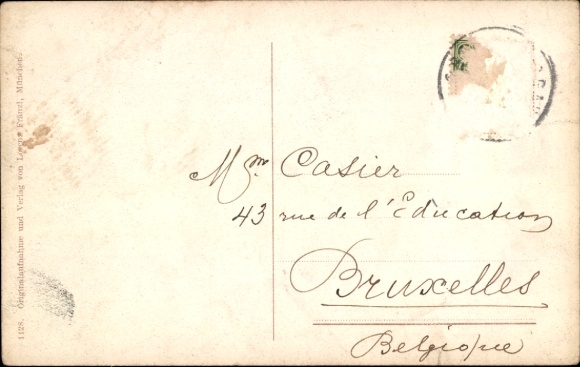 1128. Originalaufnahme und Verlag von Lorenz Fränzl, München.
Mme. Casier
43 rue de l'Education
Bruxelles
Belgique